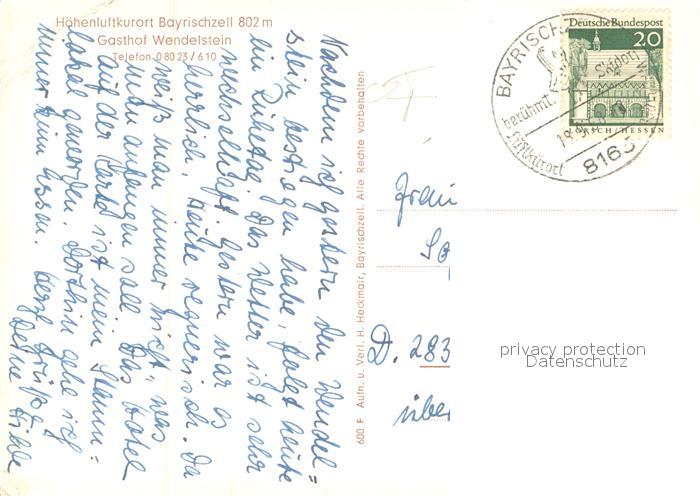 Höhenluftkurort Bayrischzell 802 m
Gasthof Wendelstein
Telefon 0 80 23 / 6 10
Nachdem ich gestern den Wendel=
stein bestiegen habe, folgt heute
ein Ruhetag. Das Wetter ist sehr
wechselhaft. Gestern war es
herrlich, heute regnerisch. Da
weiß man immer nicht, was
man anfangen soll. Das Hotel
auf der Karte ist mein Stamm=
lokal geworden. Dorthin gehe ich
immer zum Essen. Herzl. Grüße
Deine Hilde
600 F Aufn. u. Verl. H. Heckmair, Bayrischzell. Alle Rechte vorbehalten
Deutsche Bundespost
20
LORSCH/HESSEN
BAYRISCH
berühmt. Skidorf
Luftkurort
8163
Frau
D. 283
über
privacy protection
Datenschutz